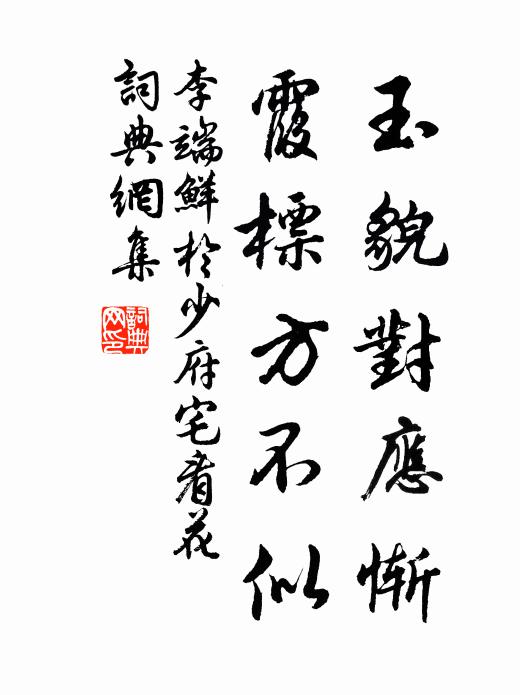 玉貌對應慚
霞標方不似
李端鮮於少府宅看花
詞典網集
詞典网印